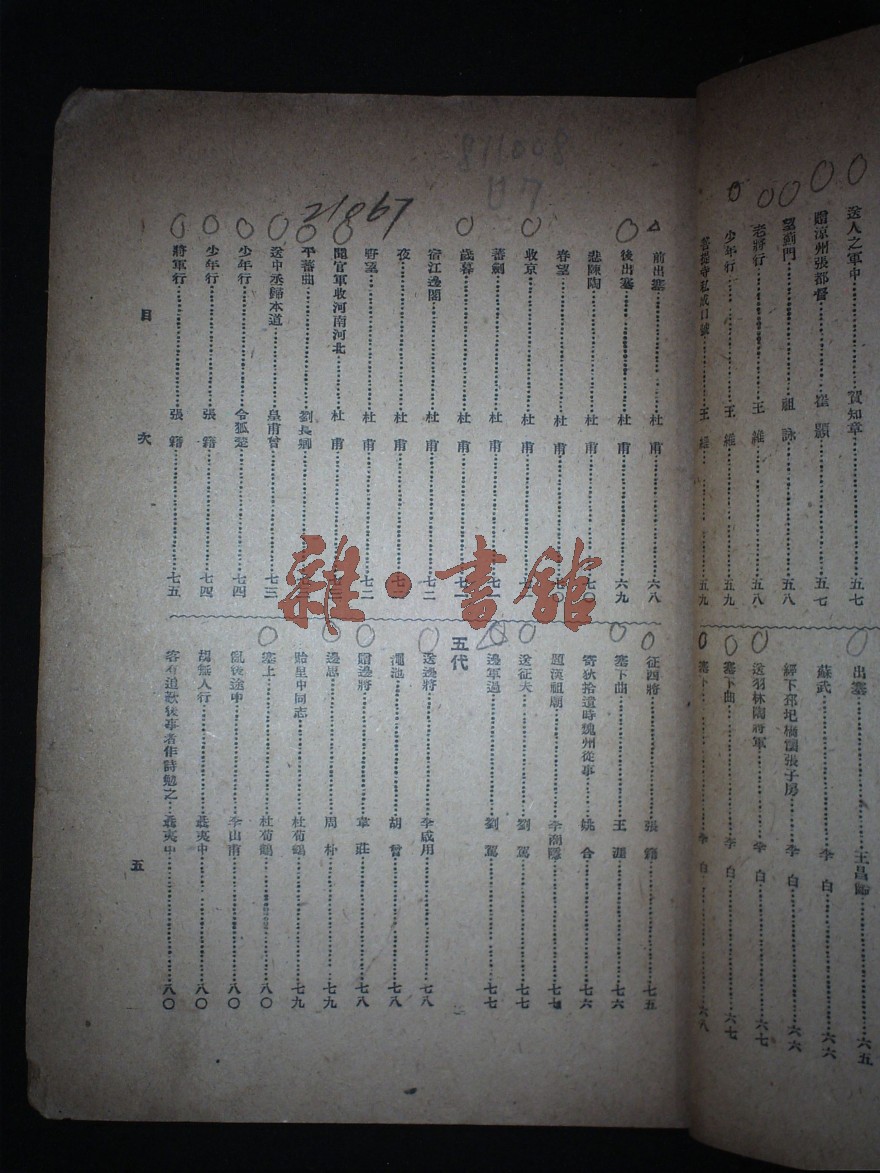 送人之軍中 賀知章 五七
贈涼州張都督 崔顥 五七
望薊門 祖詠 五八
老將行 王維 五八
少年行 王維 五九
菩提寺私成口號 王維 五九
出塞 王昌齡 六五
蘇武 李白 六六
經下邳圯橋懷張子房 李白 六六
送羽林陶將軍 李白 六七
塞下曲 李白 六七
塞下 李白 六八
811008
217
21867
前出塞 杜甫 六八
後出塞 杜甫 六九
悲陳陶 杜甫 七〇
春望 杜甫
收京 杜甫
蕃劍 杜甫
歲暮 杜甫
宿江邊閣 杜甫 七二
夜 杜甫
野望 杜甫 七二
聞官軍收河南河北 杜甫
平蕃曲 劉長卿
送中丞歸本道 皇甫曾 七三
少年行 令狐楚 七四
少年行 張籍 七四
將軍行 張籍 七五
征西將 張籍 七五
塞下曲 王涯 七六
寄狄拾遺時魏州從事 姚合 七六
題漢祖廟 李商隱 七七
送征夫 劉駕 七七
邊軍過 劉駕 七七
五代
送邊將 李咸用 七八
澠池 胡曾 七八
贈邊將 韋莊 七八
邊思 周朴 七九
貽里中同志 杜荀鶴 七九
塞上 杜荀鶴 八〇
亂後途中 李山甫 八〇
胡無人行 聶夷中 八〇
客有追歎後事者作詩勉之 聶夷中 八〇
目次
五
雜·書館